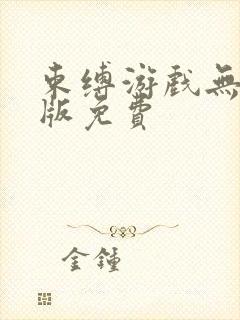 束缚游戏無
版免費
金鍾